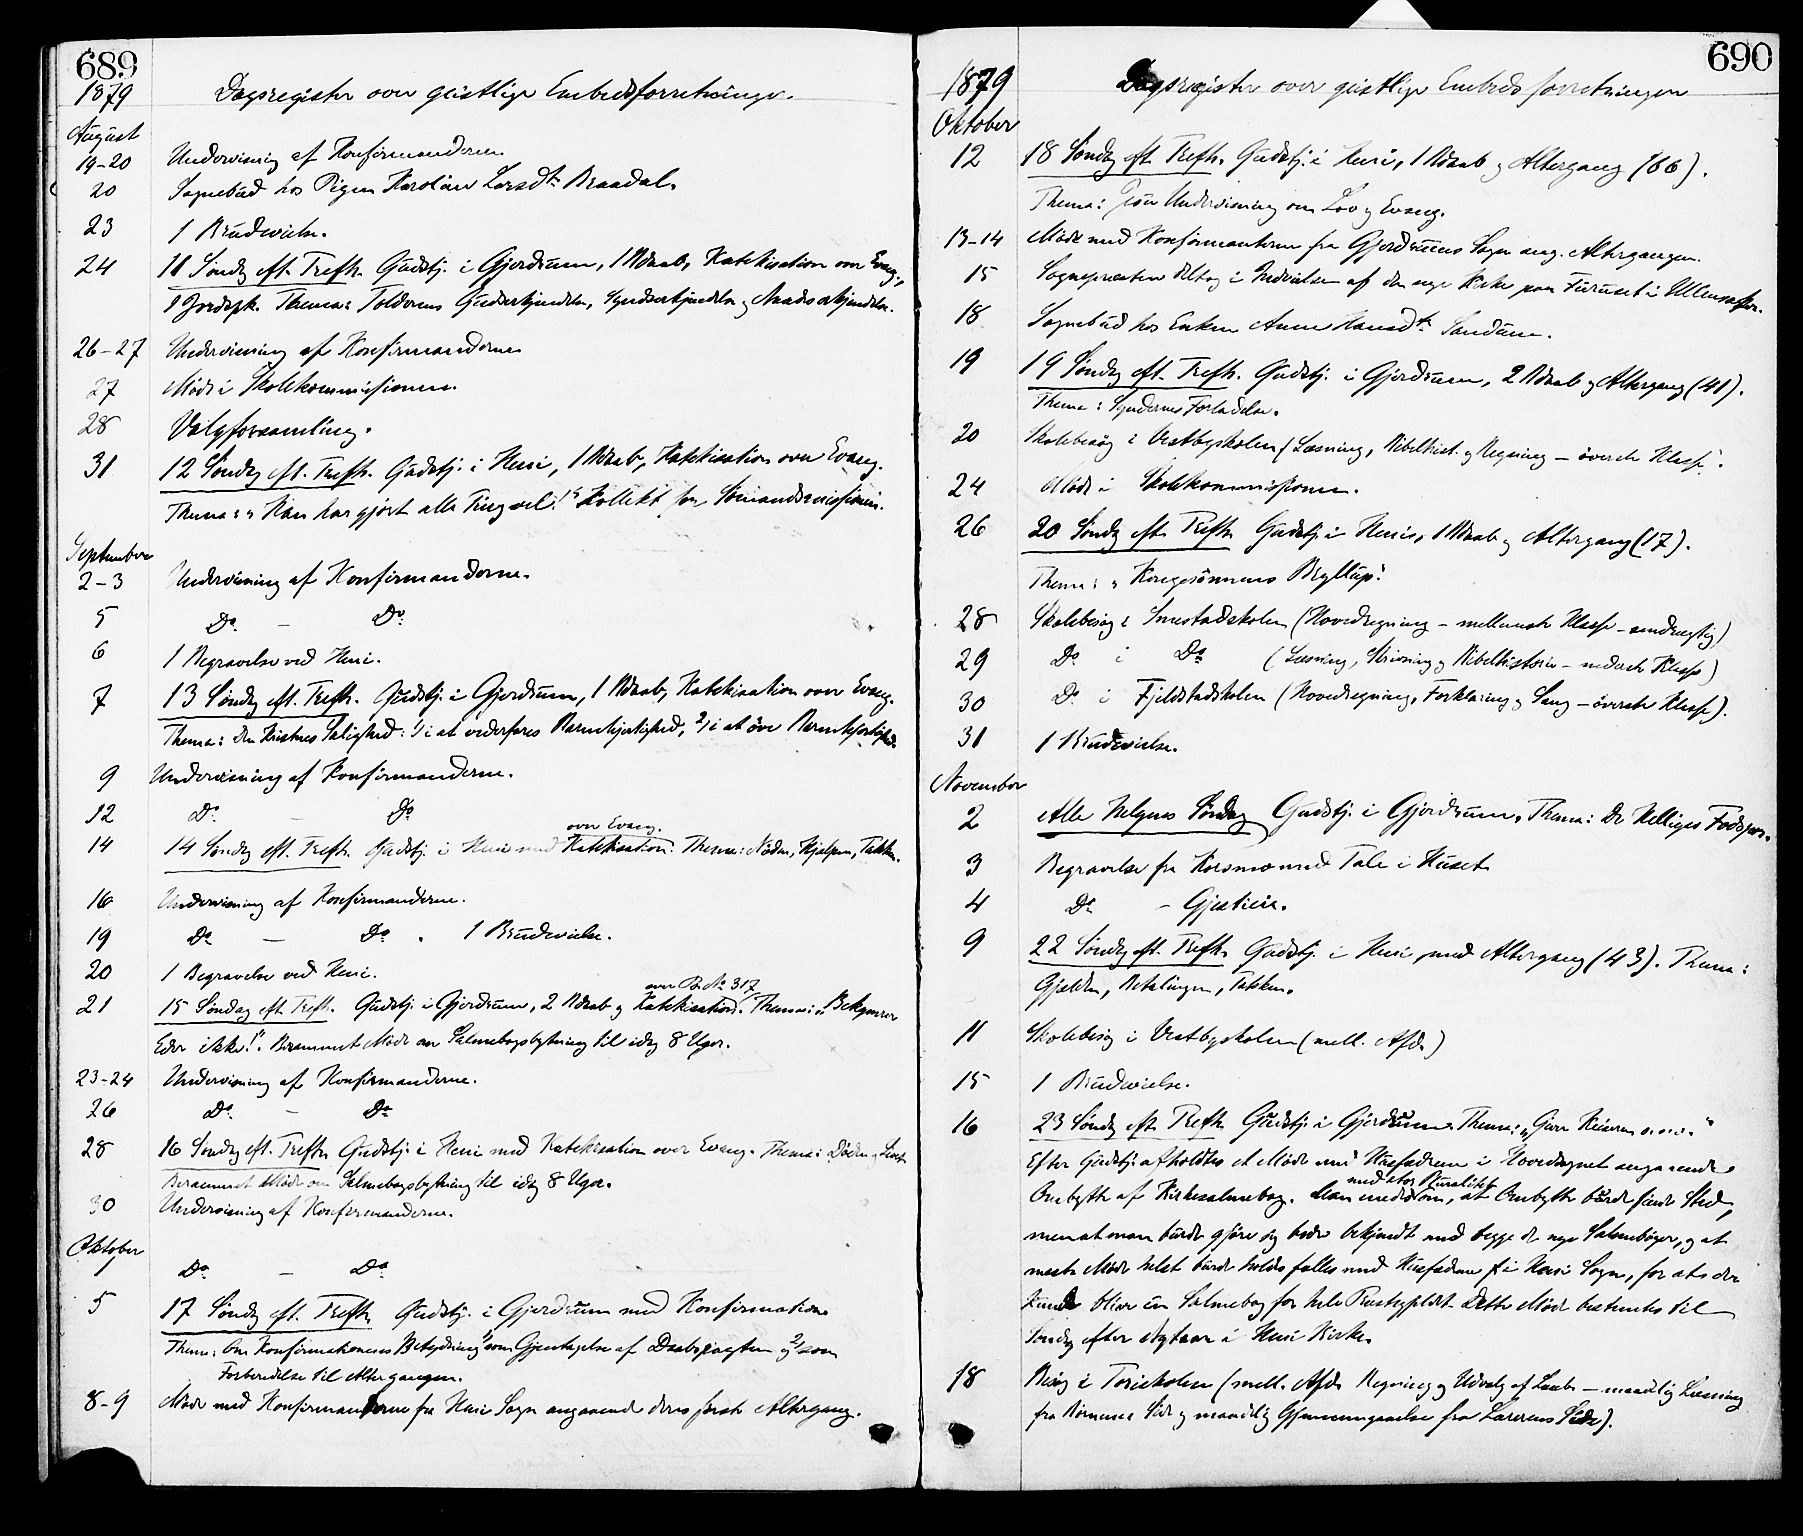 689
1879
Dagsregister over geistlige Embedsforretninger.
August
19-20 Undervisning af Konfirmanderne.
20 Sognebud hos Pigen Karoline Larsdtr Braadal.
23 1 Brudevielse.
24 11 Søndag eft. Trefh. Gudstj. i Gjerdrum, 1 Udaab, Katekisation over Evang.,
1 Jordpk. Thema: Tolderens Gudserkjendelse, Syndserkjendelse og Naadserkjendelse.
26-27 Undervisning af Konfirmanderne
27 Møde i Skolekommissionen.
28 Valgforsamling.
31 12 Søndag eft. Trefh. Gudstj. i Heni, 1 Udaab, Katekisation over Evang.
Thema: "Han har gjort alle Ting vel!" Kollekt for Sømandsmissionen.
September
2-3 Undervisning af Konfirmanderne.
5 Do. - Do.
6 1 Begravelse ved Heni.
7 13 Søndag eft. Trefh. Gudstj. i Gjerdrum, 1 Udaab, Katekisation over Evang.
Thema: Den Kristnes Salighed: 1) i at vederfares Barmhjertighed, 2) i at öve Barmhjertighed.
9 Undervisning af Konfirmanderne.
12 Do. - Do.
over Evang.
14 14 Søndag eft. Trefh. Gudstj. i Heni med Katekisation. Thema: Nöden, Hjælpen, Takken.
16 Undervisning af Konfirmanderne.
19 Do. - Do. 1 Brudevielse.
20 1 Begravelse ved Heni.
over No. 317
21 15 Søndag eft. Trefh. Gudstj. i Gjerdrum, 2 Udaab og Katekisation. Thema: "Bekymrer
Eder ikke!". Berammet Møde om Salmebogsbytning til idag 8 Uger.
23-24 Undervisning af Konfirmanderne.
26 Do. - Do.
28 16 Søndag eft. Trefh. Gudstj. i Heni med Katekisation over Evang. Thema: Döden og Livet
Berammet Møde om Salmebogsbytning til idag 8 Uger.
30 Undervisning af Konfirmanderne.
Oktober
1 Do. - Do.
5 17 Søndag eft. Trefh. Gudstj. i Gjerdrum med Konfirmation
Thema: Om Konfirmationens Betydning 1) som Gjentagelse af Daabspagten og 2) som
Forberedelse til Altergangen.
8-9 Møde med Konfirmanderne fra Heni Sogn angaaende deres første Altergang.
690
1879
Dagsregister over geistlige Embedsforretninger
Oktober
12 18 Søndag eft. Trefh. Gudstj. i Heni, 1 Udaab og Altergang (66).
Thema: Jesu Undervisning om Lov og Evang.
13-14 Møde med Konfirmanterne fra Gjerdrums Sogn ang. Altergangen.
15 Sognepræsten deltog i Indvielsen af den nye Kirke paa Furuset i Ullensaker.
18 Sognebud hos Enken Anne Hansdtr Sandum.
19 19 Søndag eft. Trefh. Gudstj. i Gjerdrum, 2 Udaab og Altergang (41).
Thema: Syndernes Forladelse.
20 Skolebesøg i Vestbyskolen (Læsning, Bibelhist. og Regning - överste Klasse).
24 Møde i Skolekommissionen.
26 20 Søndag eft. Trefh. Gudstj. i Heni, 1 Udaab og Altergang (17).
Thema: "Kongesönnens Bryllup."
28 Skolebesøg i Smestadskolen (Hovedregning - mellemste Klasse - )
29 Do. i Do. (Læsning, Skrivning og Bibelhistorie - nederste Klasse)
30 Do. i Fjeldstadskolen (Hovedregning, Forklaring og Sang - överste Klasse).
31 1 Brudevielse.
November
2 Alle Helgens Söndag Gudstj. i Gjerdrum. Thema: De Helliges Fodspor.
3 Begravelse fra Korsmo med Tale i Huset
4 Do. - Gjestien.
9 22 Søndag eft. Trefh. Gudstj. i Heni med Altergang (43). Thema:
Gjælden, Betalingen, Takken.
11 Skolebesøg i Vestbyskolen (mell. Afd.)
15 1 Brudevielse.
16 23 Søndag eft. Trefh. Gudstj. i Gjerdrum. Thema: "Giver Keiseren o.s.v."
Efter Gudstj. afholdtes et Møde med Husfædrene i Hovedsognet angaaende
med stor Pluralitet
Ombytte af Kirkesalmebog. Man enedes om, at Ombytte burde finde Sted,
men at man burde gjöre sig bedre bekjendt med begge de nye Salmebøger, og at
næste Møde helst burde holdes fælles med Husfædrene i Heni Sogn, for at der
kunde blive én Salmebog for hele Præstegjeldet. Dette Møde bestemtes til
Søndag efter Nytaar i Heni Kirke.
18 Besøg i (mell. Afd. Regning og Udvalg af Læseb. - maadelig Læsning
fra Børnenes Side og maadelig Gjennemgaaelse fra Lærerens Side).